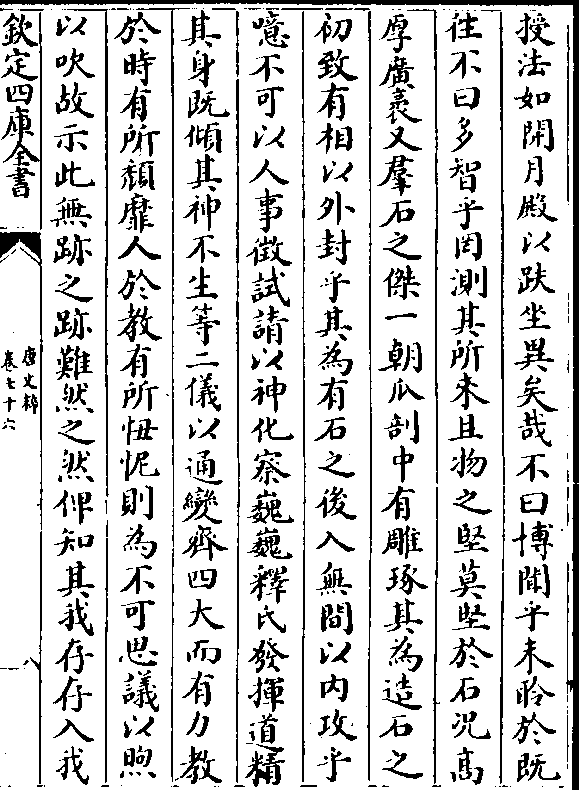 授法如開月殿以趺坐異矣哉不曰博聞乎未聆於既
往不曰多智乎罔測其所來且物之堅莫堅於石况髙
厚廣袤又羣石之傑一朝瓜剖中有雕琢其為造石之
初致有相以外封乎其為有石之後入無間以内攻乎
噫不可以人事徴試請以神化察巍巍釋氏發揮道精
其身既傾其神不生等二儀以通變齊四大而有力教
於時有所頽靡人於教有所忸怩則為不可思議以煦
以吹故示此無跡之跡難然之然俾知其我存存入我
欽定四庫全書
唐文粹
卷七十六
八